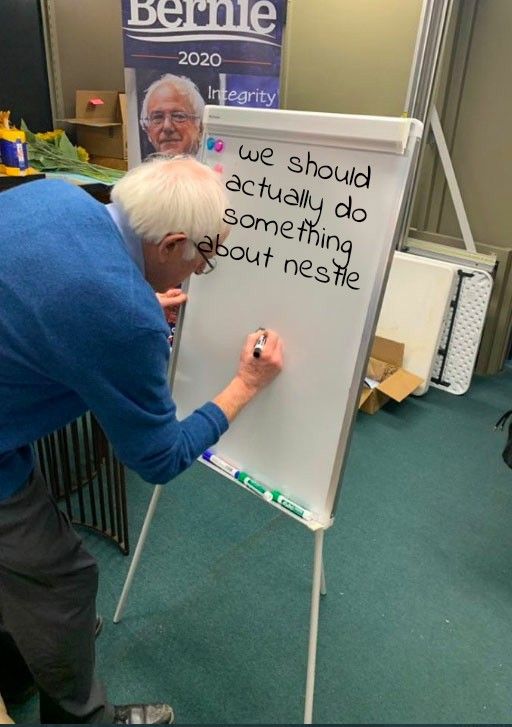 Bernie
2020
Integrity
we should
actually do
something
about nestle